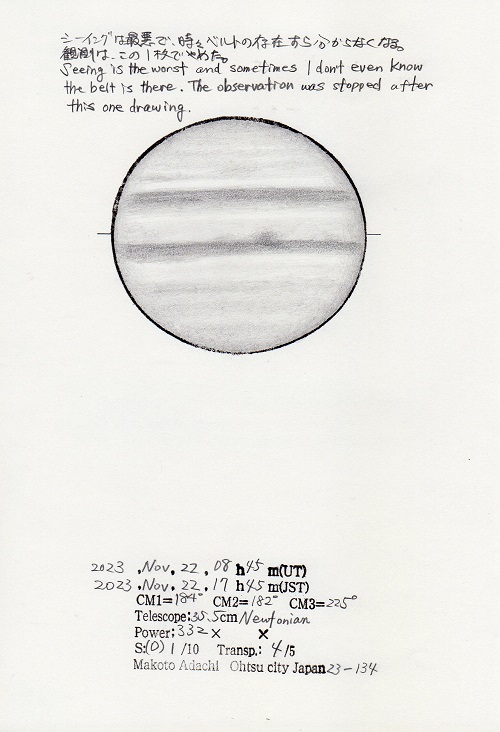 シーイングは最悪で、時々ベルトの存在すら分からなくなる。
観測は、この1枚でやめた。
Seeing is the worst and sometimes I dont even know
the belt is there. The observation was stopped after
this one drawing.
2023 .Nov. 22 , 08 h 45 m(UT)
2023 .Nov. 22 , 17 h 45 m(JST)
CM1=184° CM2=182° CM3=225°
Telescope;35.5cm Newtonian
Power; 332× ×
S:(0) 1 /10 Transp.: 4/5
Makoto Adachi Ohtsu city Japan 23-134